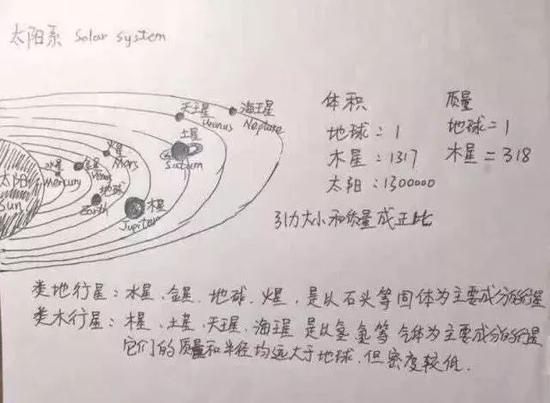 太阳系 Solar system
天王星
Uranus
海王星
Neptune
土星
Saturn
火星
Mars
水星
Mercury
金星
地球
Earth
太阳
Sun
木星
Jupiter
体积
地球=1
木星=1317
太阳:1300000
质量
地球=1
木星=318
引力大小和质量成正比
类地行星:水星、金星、地球、火星,是以石头等固体为主要成分的行星
类木行星:木星、土星、天王星、海王星 是以氢氦等气体为主要成分的行星
它们的质量和半径均远大于地球,但密度较低.